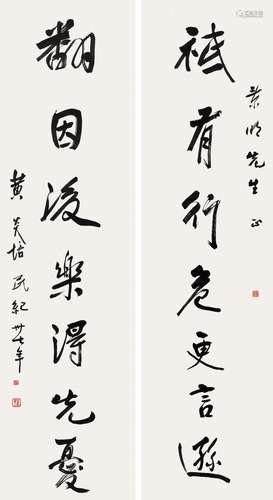 先生 正
祗有行危更言遜
翻因後樂得先憂
黃炎培 民紀卅七年